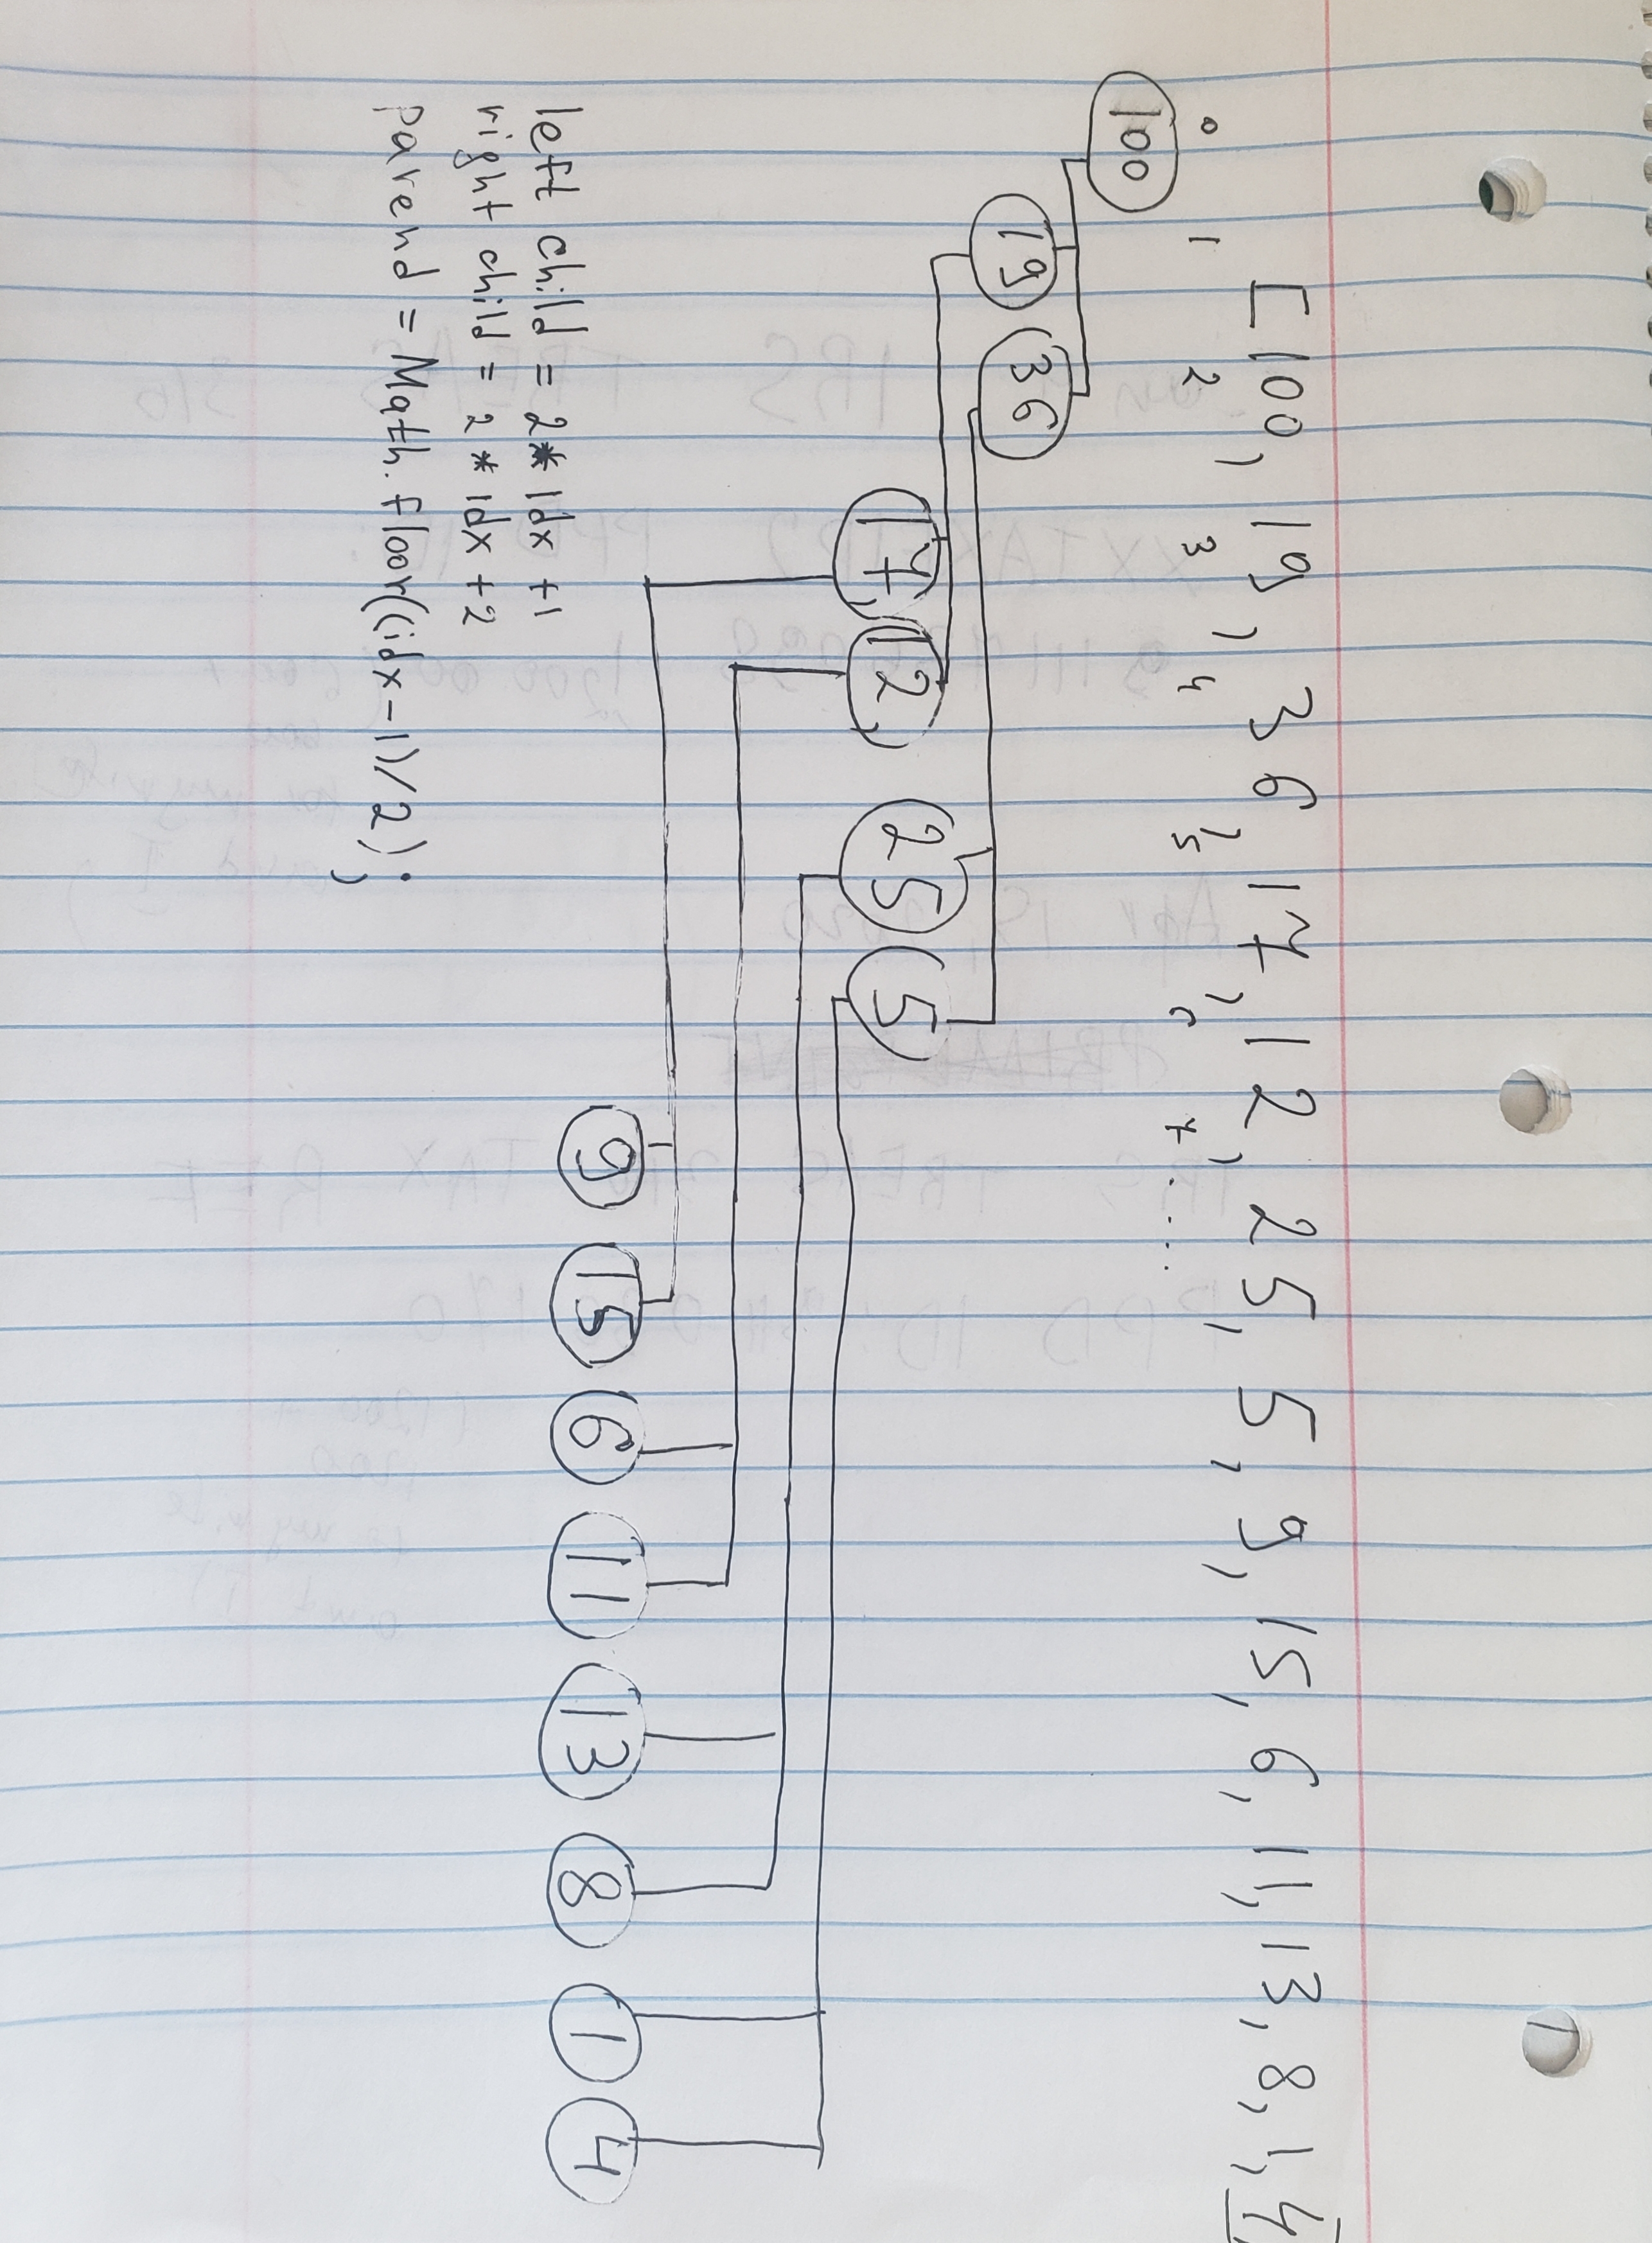 [100, 19, 36, 17, 12, 25, 5, 9, 15, 6, 11, 13, 8, 1, 4]
0 1 2 3 4 5 6 7 ....
100
19 36
17, 12, 25 5
9 15 6 11 13 8 1 4
left child = 2 * idx +1
right child = 2 * idx +2
parend = Math.floor((idx-1)/2);